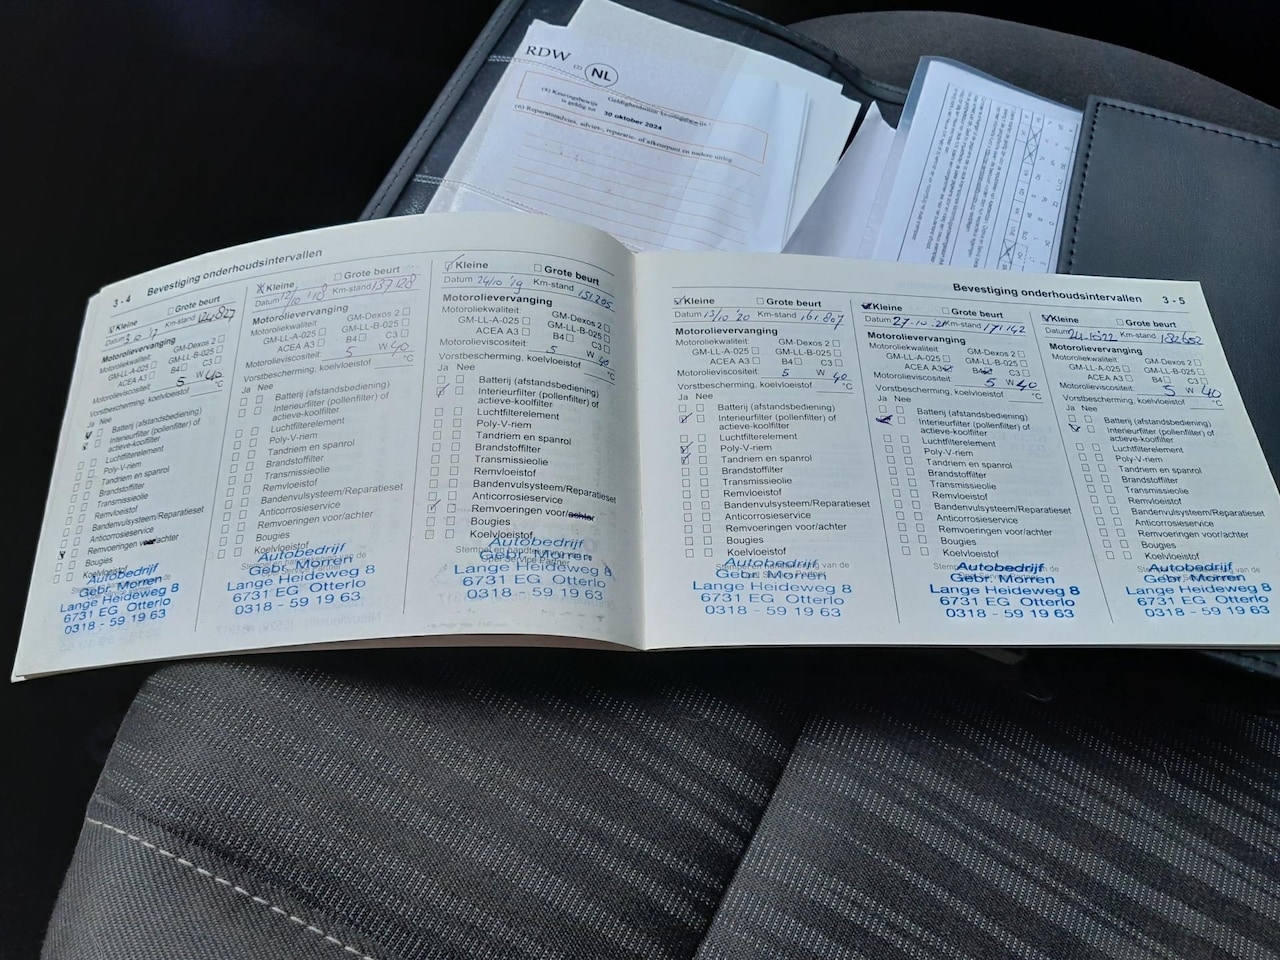 RDW
(2)
NL
Geldigheidsduur keuringsbewijs
(4) Keuringsbewijs
is geldig tot 30 oktober 2024
(6) Reparatieadvies, advies-, reparatie- of afkeurpunt en nadere uitleg
3 - 4 Bevestiging onderhoudsintervallen
Kleine Grote beurt
Datum Km-stand 124.827
Motorolievervanging
Motoroliekwaliteit: GM-Dexos 2
GM-LL-A-025 GM-LL-B-025
ACEA A3 B4 C3
Motorolieviscositeit: 5 W 40
Vorstbescherming, koelvloeistof °C
Ja Nee
Batterij (afstandsbediening)
Interieurfilter (pollenfilter) of
actieve-koolfilter
Luchtfilterelement
Poly-V-riem
Tandriem en spanrol
Brandstoffilter
Transmissieolie
Remvloeistof
Bandenvulsysteem/Reparatieset
Anticorrosieservice
Remvoeringen voor/achter
Bougies
Koelvloeistof
Autobedrijf
Gebr. Morren
Lange Heideweg 8
6731 EG Otterlo
0318 - 59 19 63
Kleine Grote beurt
Datum 12/10 '18 Km-stand 137128
Motorolievervanging
Motoroliekwaliteit: GM-Dexos 2
GM-LL-A-025 GM-LL-B-025
ACEA A3 B4 C3
Motorolieviscositeit: 5 W 40
Vorstbescherming, koelvloeistof °C
Ja Nee
Batterij (afstandsbediening)
Interieurfilter (pollenfilter) of
actieve-koolfilter
Luchtfilterelement
Poly-V-riem
Tandriem en spanrol
Brandstoffilter
Transmissieolie
Remvloeistof
Bandenvulsysteem/Reparatieset
Anticorrosieservice
Remvoeringen voor/achter
Bougies
Koelvloeistof
Autobedrijf
Gebr. Morren
Lange Heideweg 8
6731 EG Otterlo
0318 - 59 19 63
Kleine Grote beurt
Datum 24/10 '19 Km-stand 151205
Motorolievervanging
Motoroliekwaliteit: GM-Dexos 2
GM-LL-A-025 GM-LL-B-025
ACEA A3 B4 C3
Motorolieviscositeit: 5 W 40
Vorstbescherming, koelvloeistof °C
Ja Nee
Batterij (afstandsbediening)
Interieurfilter (pollenfilter) of
actieve-koolfilter
Luchtfilterelement
Poly-V-riem
Tandriem en spanrol
Brandstoffilter
Transmissieolie
Remvloeistof
Bandenvulsysteem/Reparatieset
Anticorrosieservice
Remvoeringen voor/achter
Bougies
Koelvloeistof
Stempel en handtekening van de
Opel Service Partner
Autobedrijf
Gebr. Morren
Lange Heideweg 8
6731 EG Otterlo
0318 - 59 19 63
Bevestiging onderhoudsintervallen 3 - 5
Kleine Grote beurt
Datum 13/10 '20 Km-stand 161.807
Motorolievervanging
Motoroliekwaliteit: GM-Dexos 2
GM-LL-A-025 GM-LL-B-025
ACEA A3 B4 C3
Motorolieviscositeit: 5 W 40
Vorstbescherming, koelvloeistof °C
Ja Nee
Batterij (afstandsbediening)
Interieurfilter (pollenfilter) of
actieve-koolfilter
Luchtfilterelement
Poly-V-riem
Tandriem en spanrol
Brandstoffilter
Transmissieolie
Remvloeistof
Bandenvulsysteem/Reparatieset
Anticorrosieservice
Remvoeringen voor/achter
Bougies
Koelvloeistof
Autobedrijf
Gebr. Morren
Lange Heideweg 8
6731 EG Otterlo
0318 - 59 19 63
Kleine Grote beurt
Datum 27-10-21 Km-stand 171142
Motorolievervanging
Motoroliekwaliteit: GM-Dexos 2
GM-LL-A-025 GM-LL-B-025
ACEA A3 B4 C3
Motorolieviscositeit: 5 W 40
Vorstbescherming, koelvloeistof °C
Ja Nee
Batterij (afstandsbediening)
Interieurfilter (pollenfilter) of
actieve-koolfilter
Luchtfilterelement
Poly-V-riem
Tandriem en spanrol
Brandstoffilter
Transmissieolie
Remvloeistof
Bandenvulsysteem/Reparatieset
Anticorrosieservice
Remvoeringen voor/achter
Bougies
Koelvloeistof
Autobedrijf
Gebr. Morren
Lange Heideweg 8
6731 EG Otterlo
0318 - 59 19 63
Kleine Grote beurt
Datum Km-stand 182652
Motorolievervanging
Motoroliekwaliteit: GM-Dexos 2
GM-LL-A-025 GM-LL-B-025
ACEA A3 B4 C3
Motorolieviscositeit: 5 W 40
Vorstbescherming, koelvloeistof °C
Ja Nee
Batterij (afstandsbediening)
Interieurfilter (pollenfilter) of
actieve-koolfilter
Luchtfilterelement
Poly-V-riem
Tandriem en spanrol
Brandstoffilter
Transmissieolie
Remvloeistof
Bandenvulsysteem/Reparatieset
Anticorrosieservice
Remvoeringen voor/achter
Bougies
Koelvloeistof
Autobedrijf
Gebr. Morren
Lange Heideweg 8
6731 EG Otterlo
0318 - 59 19 63